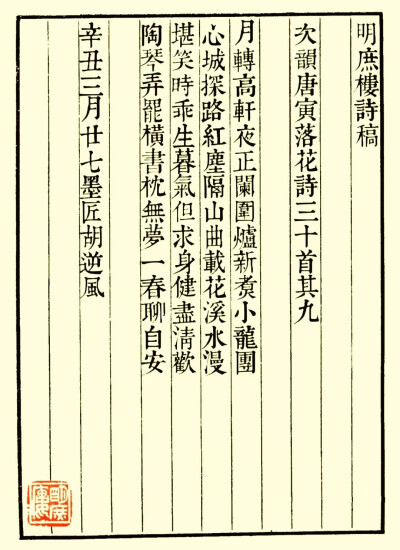 明庶樓詩稿
次韻唐寅落花詩三十首其九
月轉高軒夜正闌圍爐新煑小龍團
心城探路紅塵隔山曲載花溪水漫
堪笑時乖生暮氣但求身健盡清歡
陶琴弄罷橫書枕無夢一春聊自安
辛丑三月廿七墨匠胡逆風